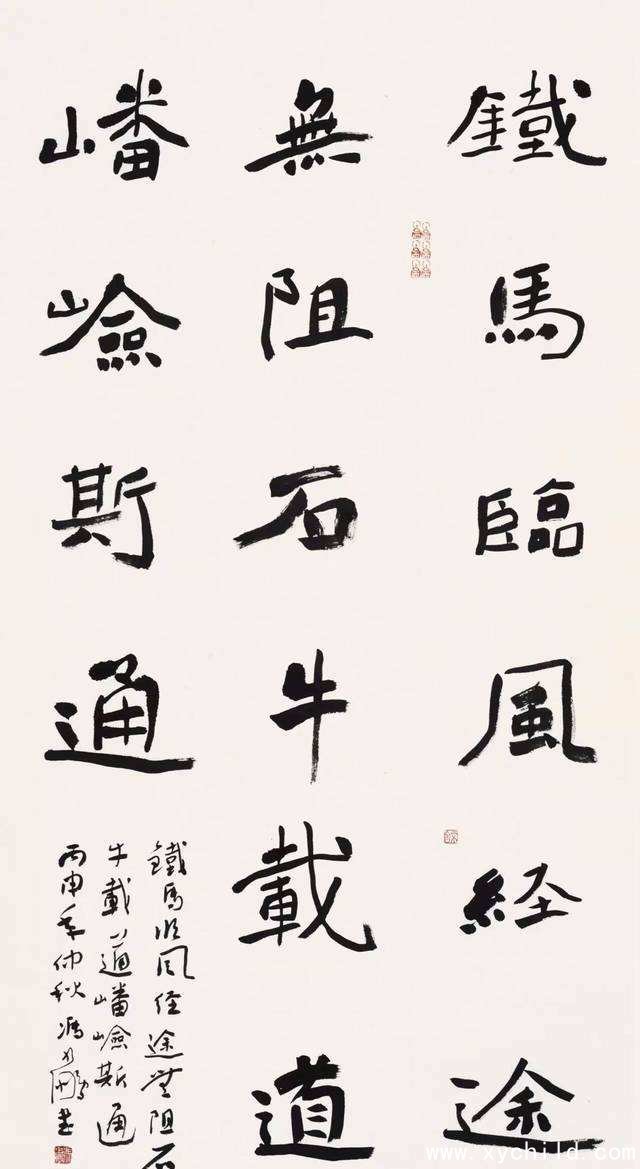 鐵馬臨風経途
無阻石牛載道
嶓嶮斯通
鐵馬临风经途無阻石
牛載道嶓嶮斯通
丙申年仲秋馮鵬書
www.xychild.com